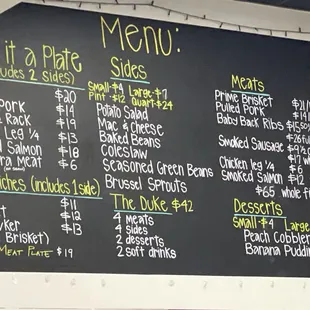 Menu:
it a Plate
udes 2 sides)
$20
Pork $14
Rack $19
Leg ¼ $13
Salmon $18
ra Meat $6
iches (includes 1 side)
$11
$12
$13
Brisket)
Meat Plate $19
Sides
Small-$4 Large-$7
Pint-$12 Quart-$24
Potato Salad
Mac & Cheese
Baked Beans
Coleslaw
Seasoned Green Beans
Brussel Sprouts
The Duke $42
4 meats
4 sides
2 desserts
2 soft drinks
Meats
Prime Brisket
Pulled Pork
Baby Back Ribs
Smoked Sausage
Chicken leg ¼
Smoked Salmon $12
$65 whole
Desserts
Small-$4 Large
Peach Cobbler
Banana Puddin